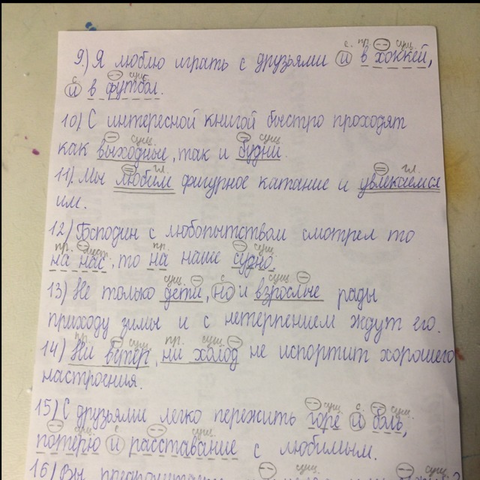 9) Я люблю играть с друзьями и в хоккей,
и в футбол.
10) С интересной книгой быстро проходят
как выходные, так и будни.
11) Мы любим фигурное катание и увлекаемся
им.
12) Господин с любопытством смотрел то
на нас, то на наше судно.
13) Не только дети, но и взрослые рады
приходу зимы и с нетерпением ждут его.
14) Ни ветер, ни холод не испортит хорошего
настроения.
15) С друзьями легко пережить горе и боль,
потерю и расставание с любимым.
16) Вы